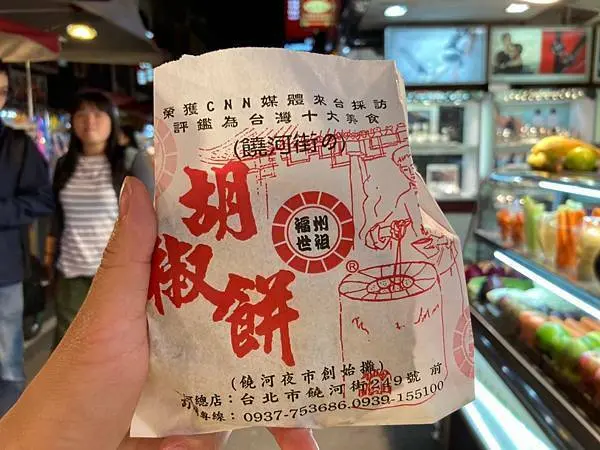 榮獲CNN媒體來台採訪
評鑑為台灣十大美食
(饒河街の)
胡椒餅
福州
世祖
®
(饒河夜市創始攤)
總店：台北市饒河街249號前
專線：0937-753686.0939-155100